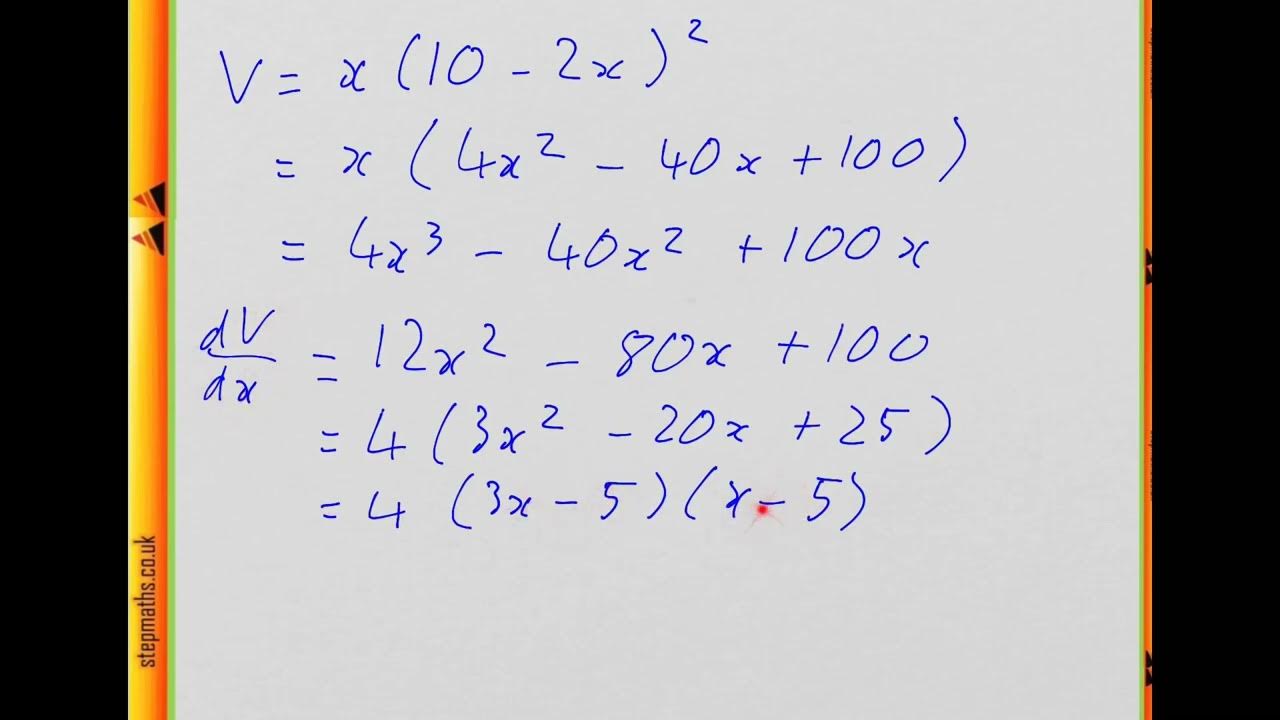 V = x(10 - 2x)²
= x(4x² - 40x + 100)
= 4x³ - 40x² + 100x
dV/dx = 12x² - 80x + 100
= 4(3x² - 20x + 25)
= 4(3x - 5)(x - 5)
stepmaths.co.uk